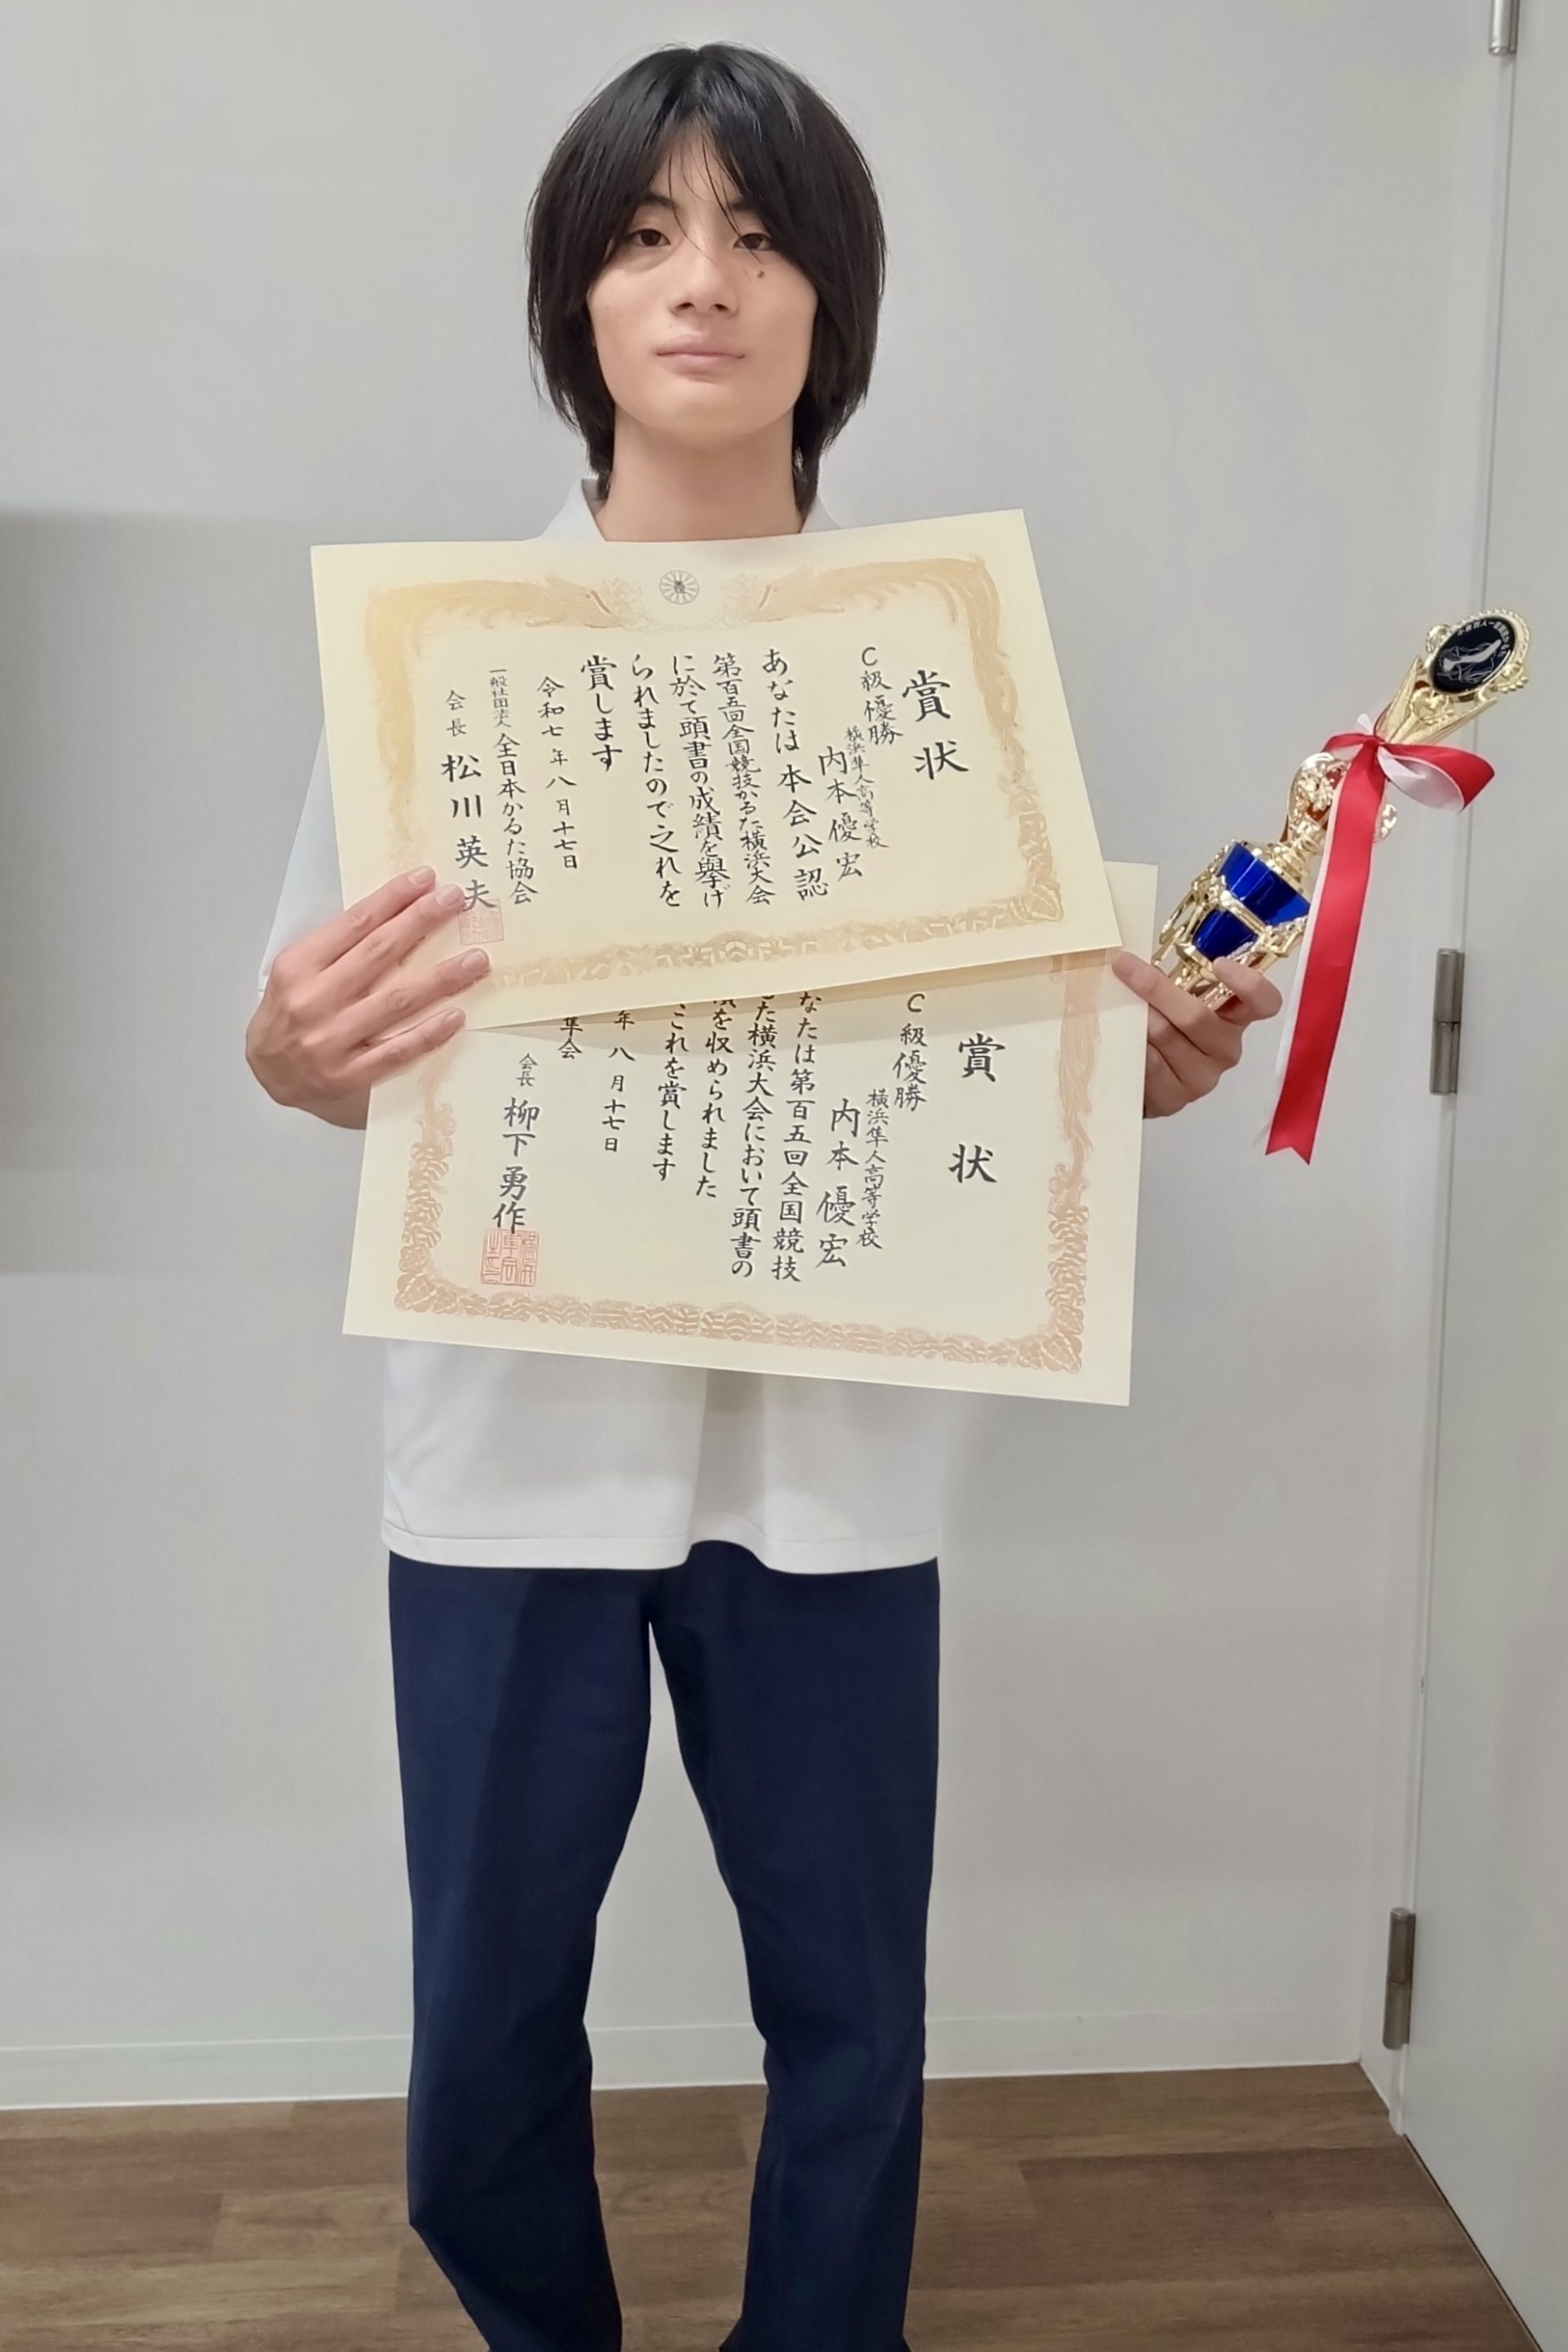 賞状
C級優勝
横浜隼人高等学校
内本優宏
あなたは本会公認
第百五回全国競技かるた横浜大会
に於て頭書の成績を挙げ
られましたので之れを
賞します
令和七年八月十七日
一般社団法人全日本かるた協会
会長 松川英夫
賞状
C級優勝
横浜隼人高等学校
内本優宏
なたは第百五回全国競技
た横浜大会において頭書の
を収められました
これを賞します
年八月十七日
隼会
会長 柳下勇作